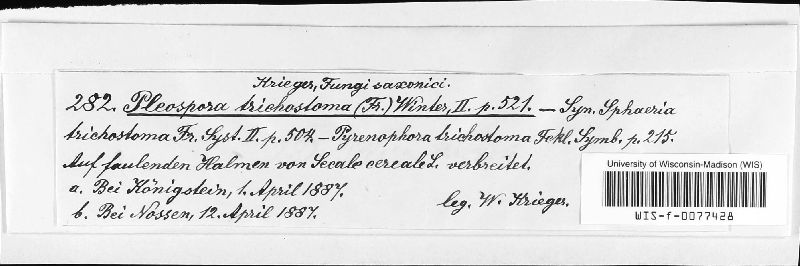 Krieger, Fungi saxonici.
282. Pleospora trichostoma (Fr.) Winter, II. p. 521. — Syn. Sphaeria
trichostoma Fr. Syst. II. p. 504. — Pyrenophora trichostoma Fckl. Symb. p. 215.
Auf faulenden Halmen von Secale cereale L. verbreitet.
a. Bei Königstein, 1. April 1887.
b. Bei Nossen, 12. April 1887.
leg. W. Krieger.
University of Wisconsin-Madison (WIS)
WIS-f-0077428